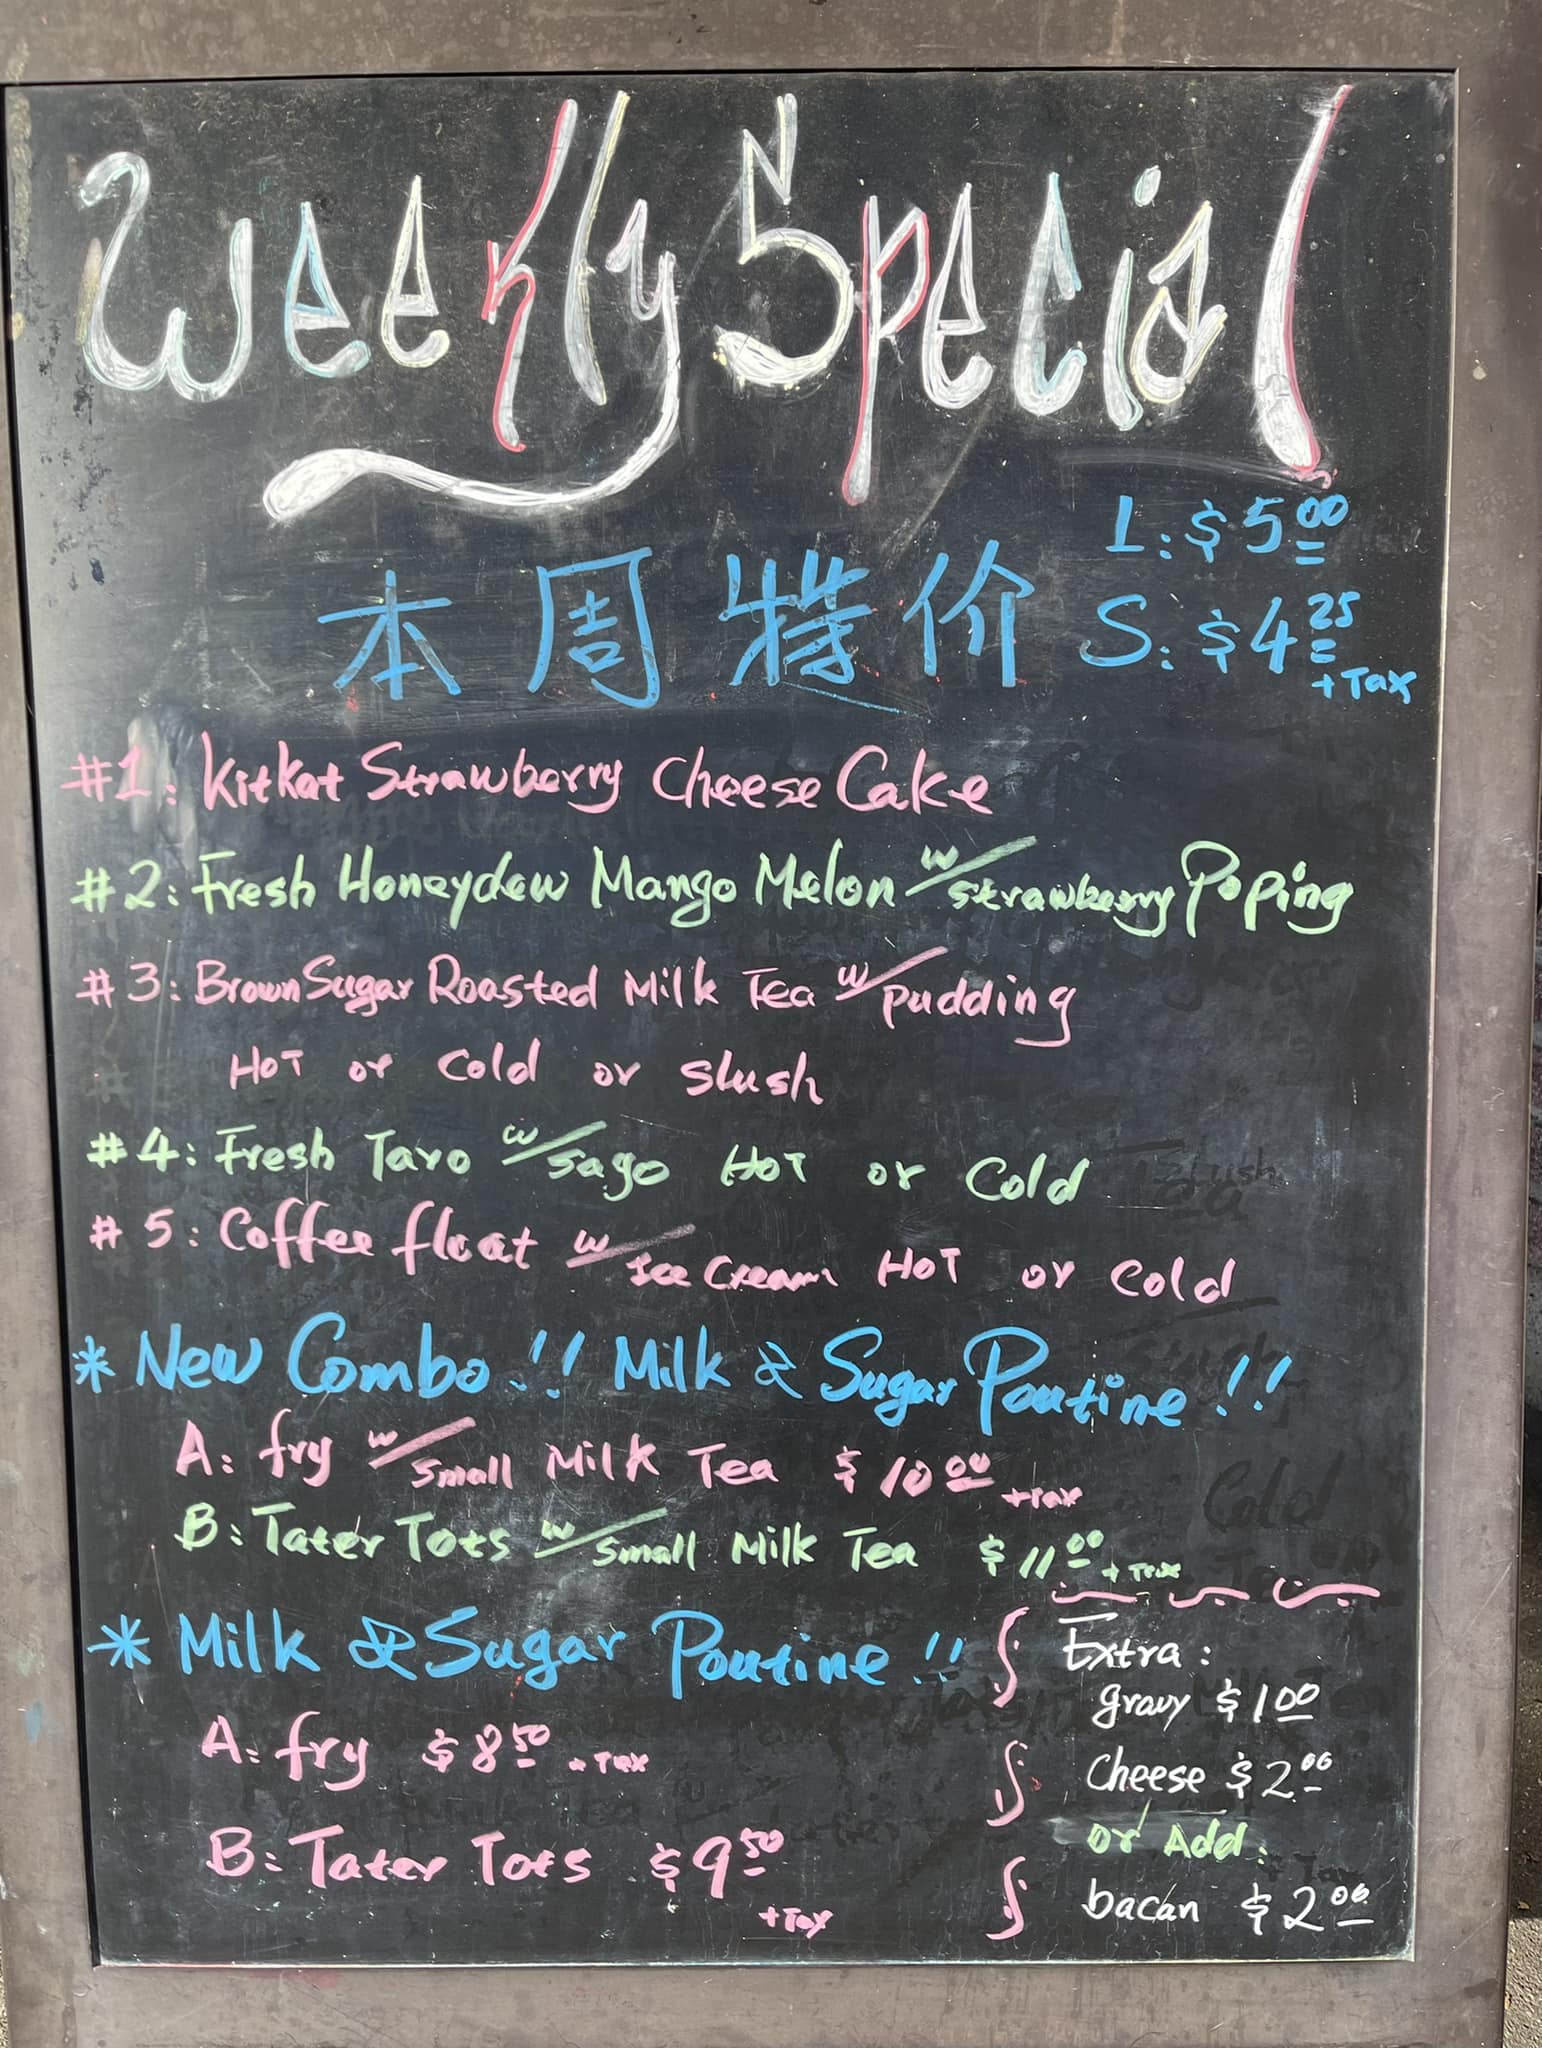 Weekly Special
L: $5.00
本周特价
S: $4.25
+Tax
#1: KitKat Strawberry Cheese Cake
#2: Fresh Honeydew Mango Melon w/ strawberry Poping
#3: Brown Sugar Roasted Milk Tea w/ pudding
HOT or Cold or slush
#4: Fresh Taro w/ sago HOT or Cold
#5: Coffee float w/ Ice Cream HOT or Cold
* New Combo!! Milk & Sugar Poutine!!
A: fry w/ small Milk Tea $10.00 +Tax
B: Tater Tots w/ small Milk Tea $11.00 +Tax
* Milk & Sugar Poutine!!
A: fry $8.50 +Tax
B: Tater Tots $9.50
+Tax
Extra:
gravy $1.00
Cheese $2.00
or Add:
bacan $2.00